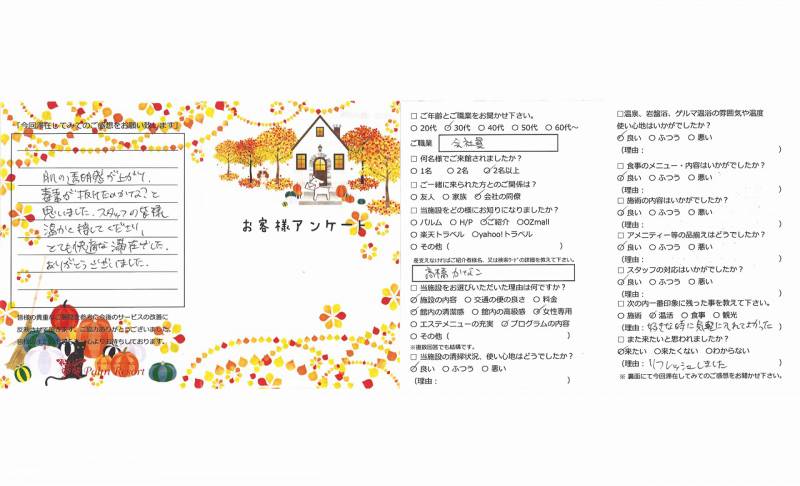 「今回滞在してみてのご感想をお願い致します」
肌の透明感が上がって、
毒素が抜けたのかな?と
思いました。スタッフの皆様
温かく接してくださり、
とても快適な滞在でした。
ありがとうございました。
皆様の貴重なご意見を参考に今後のサービスの改善に
反映させて頂きます。ご協力ありがとうございました。
Palm Resort
お客様アンケート
□ ご年齢とご職業をお聞かせ下さい。
○ 20代 ○ 30代 ○ 40代 ○ 50代 ○ 60代~
ご職業 会社員
□ 何名様でご来館されましたか?
○ 1名 ○ 2名 ○ 2名以上
□ ご一緒に来られた方とのご関係は?
○ 友人 ○ 家族 ○ 会社の同僚
□ 当施設をどの様にお知りになりましたか?
○ パルム ○ H/P ○ ご紹介 ○OZmall
○ 楽天トラベル ○yahoo!トラベル
○ その他( )
差支えなければご紹介者様名、又は検索ワードの詳細を教えて下さい。
高橋 かなこ
□ 当施設をお選びいただいた理由は何ですか?
○ 施設の内容 ○ 交通の便の良さ ○ 料金
○ 館内の清潔感 ○ 館内の高級感 ○ 女性専用
○ エステメニューの充実 ○ プログラムの内容
○ その他( )
※複数回答でも結構です。
□ 当施設の清掃状況、使い心地はどうでしたか?
○ 良い ○ ふつう ○ 悪い
(理由: )
□温泉、岩盤浴、ゲルマ温浴の雰囲気や温度
使い心地はいかがでしたか?
○ 良い ○ ふつう ○ 悪い
(理由: )
□ 食事のメニュー・内容はいかがでしたか?
○ 良い ○ ふつう ○ 悪い
(理由: )
□ 施術の内容はいかがでしたか?
○ 良い ○ ふつう ○ 悪い
□ アメニティー等の品揃えはどうでしたか?
○ 良い ○ ふつう ○ 悪い
(理由: )
□ スタッフの対応はいかがでしたか?
○ 良い ○ ふつう ○ 悪い
(理由: )
□ 次の内一番印象に残った事を教えて下さい。
○ 施術 ○ 温活 ○ 食事 ○ 観光
(理由: 好きな時に気軽に入れてよかった )
□ また来たいと思われましたか?
○来たい ○ 来たくない ○わからない
(理由: リフレッシュしました )
※ 裏面にて今回滞在してみてのご感想をお聞かせ下さい。